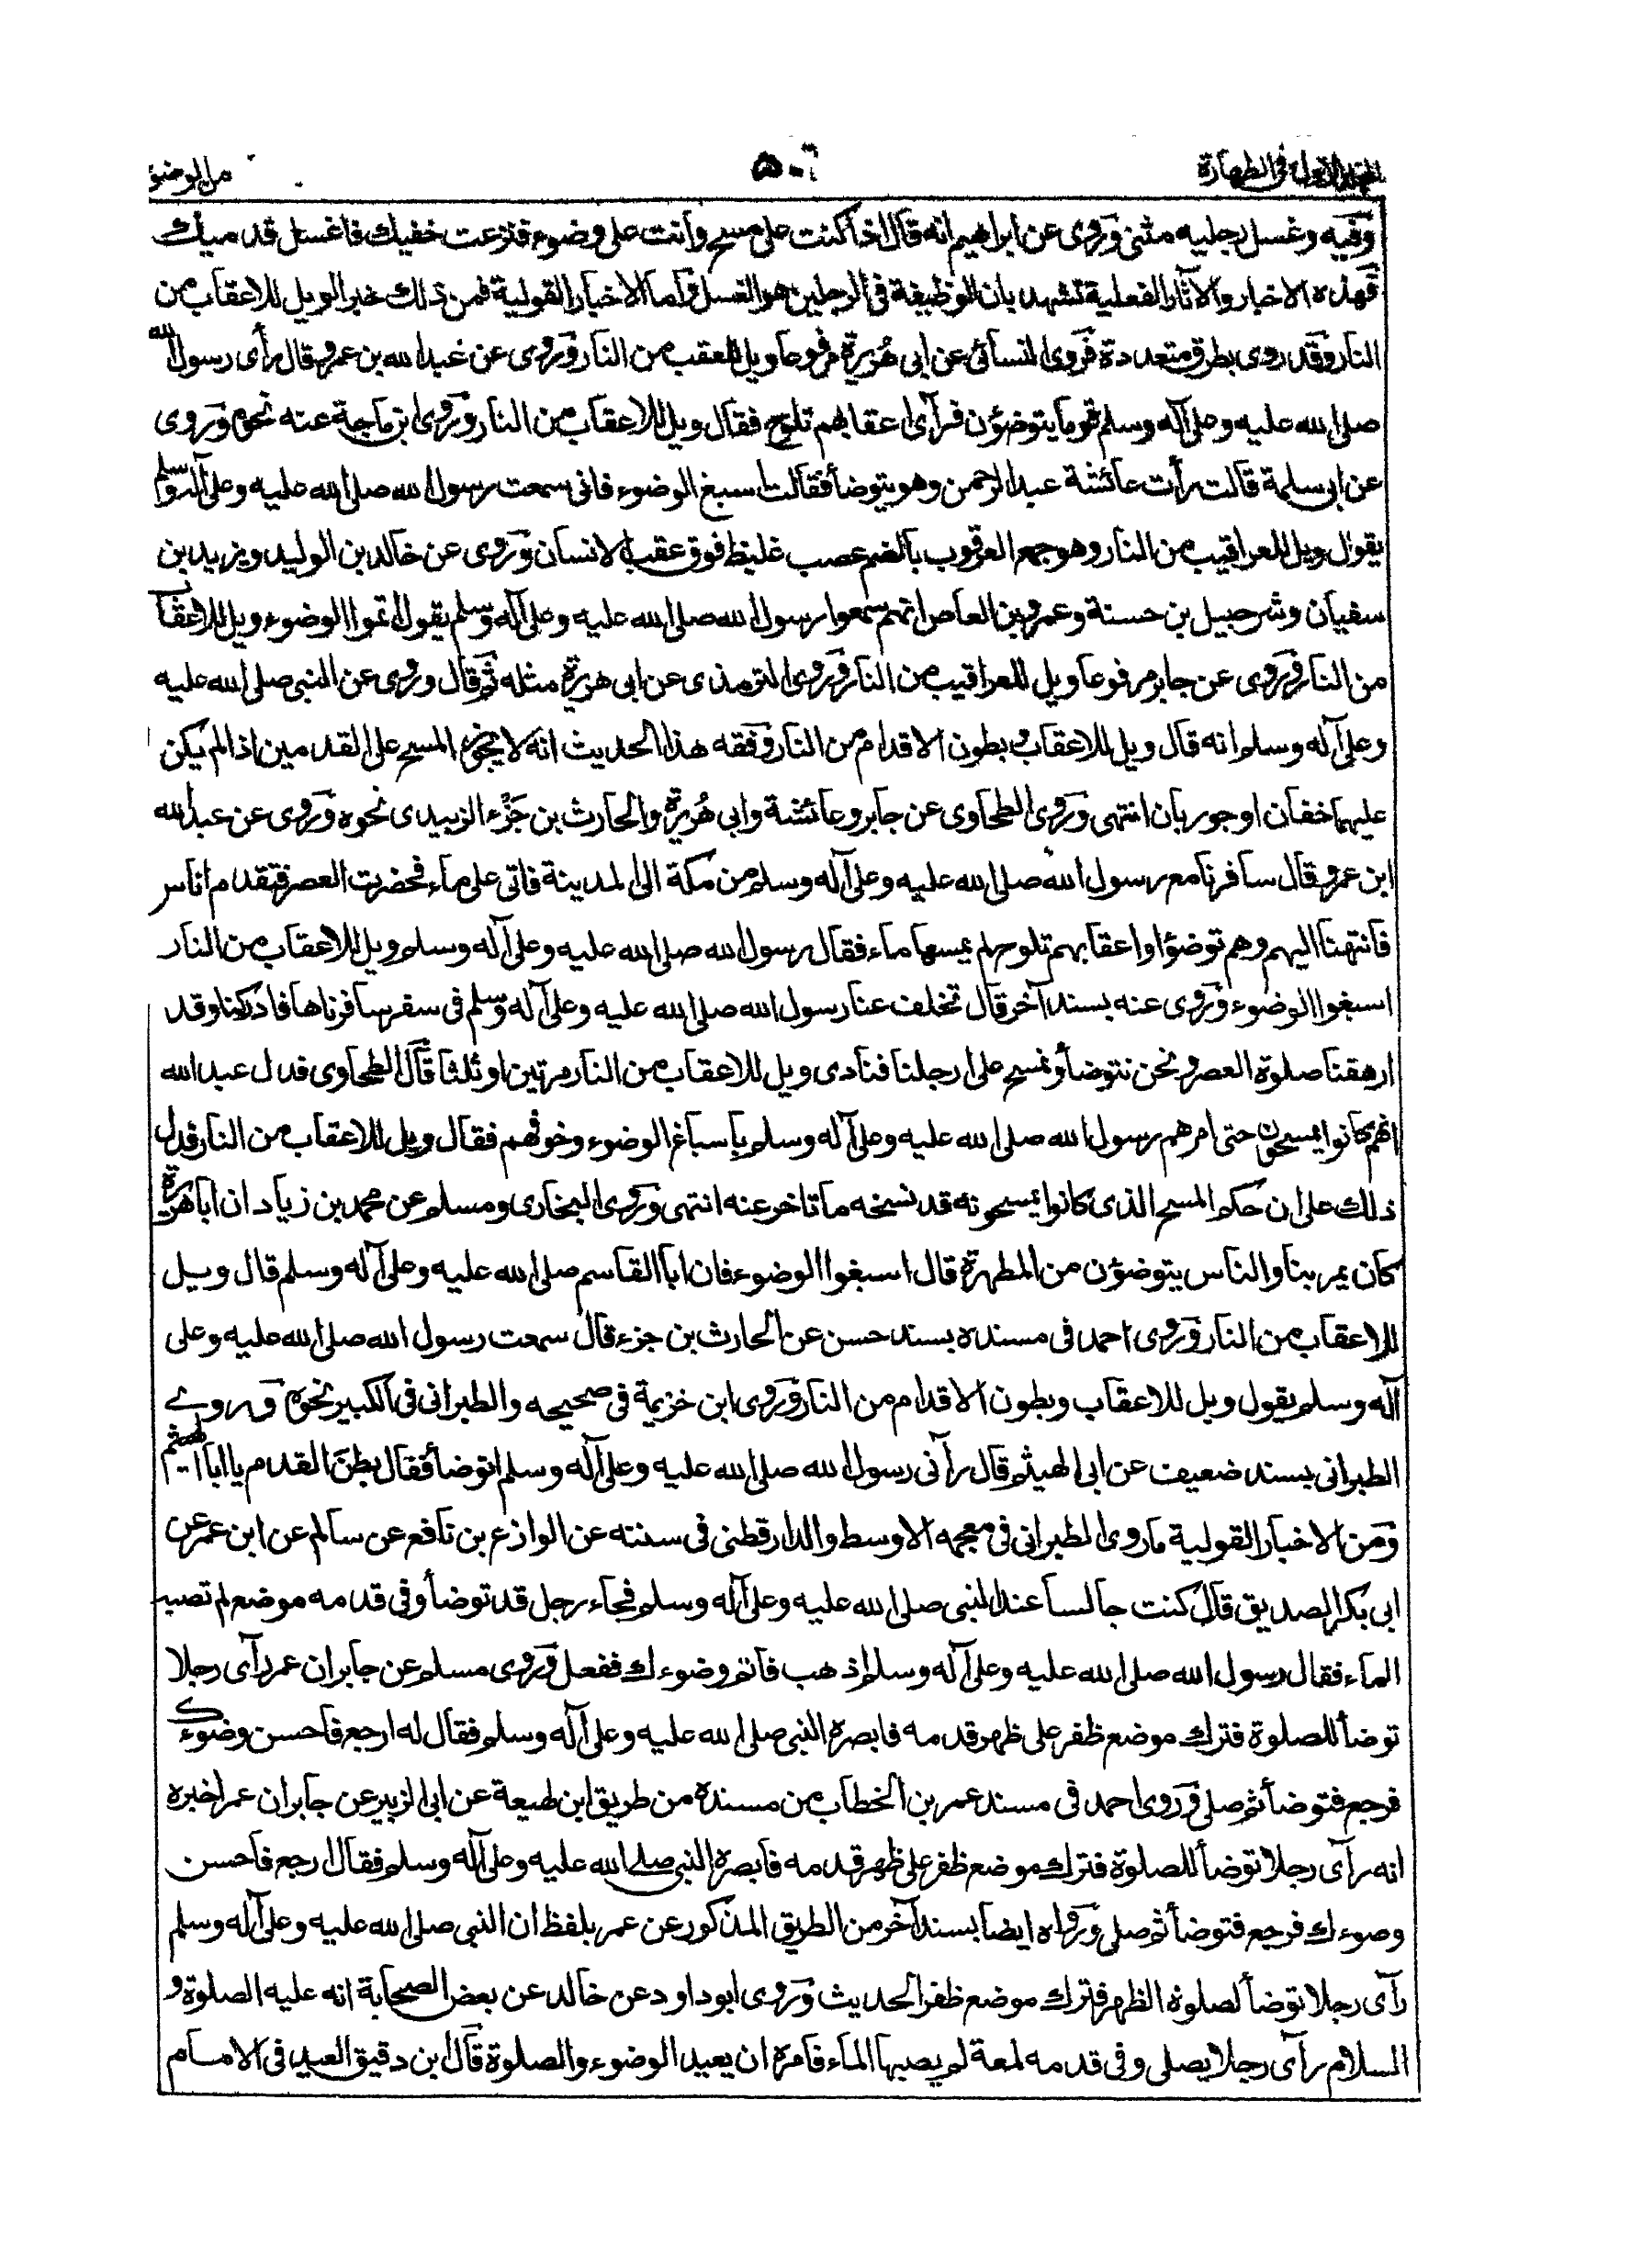 المجلد الاول فى الطهارة ٥٠ من الوضوء
وفيه وغسل رجليه مثنى وروى عن ابراهيم انه قال اذا كنت على مسح وانت على وضوء فنزعت خفيك فاغسل قدميك
فهذه الاخبار والآثار الفعلية تشهد بان الوظيفة فى الرجلين هو الغسل واما الاخبار القولية فمن ذلك خبر الويل للاعقاب من
النار وقد روى بطرق متعددة فروى النسائى عن ابى هُريرة مرفوعا ويل للعقب من النار وروى عن عبد الله بن عمرو قال رأى رسول الله
صلى الله عليه وعلى آله وسلم قوما يتوضؤن فرآى اعقابهم تلوح فقال ويل للاعقاب من النار وروى ابن ماجة عنه نحوه وروى
عن ابى سلمة قالت رأت عائشة عبد الرحمن وهو يتوضأ فقالت اسبغ الوضوء فانى سمعت رسول الله صلى الله عليه وعلى آله وسلم
يقول ويل للعراقيب من النار وهو جمع العرقوب بالضم عصب غليظ فوق عقب الانسان وروى عن خالد بن الوليد ويزيد بن
سفيان وشرحبيل بن حسنة وعمرو بن العاص انهم سمعوا رسول الله صلى الله عليه وعلى آله وسلم يقول اتموا الوضوء ويل للاعقاب
من النار وروى عن جابر مرفوعا ويل للعراقيب من النار وروى الترمذى عن ابى هريرة مثله ثم قال وروى عن النبى صلى الله عليه
وعلى آله وسلم انه قال ويل للاعقاب وبطون الاقدام من النار وفقه هذا الحديث انه لا يجوز المسح على القدمين اذا لم يكن
عليهما خفان او جوربان انتهى وروى الطحاوى عن جابر وعائشة وابى هُريرة والحارث بن جَزْء الزبيدى نحوه وروى عن عبد الله
ابن عمرو قال سافرنا مع رسول الله صلى الله عليه وعلى آله وسلم من مكة الى المدينة فاتى على ماء فحضرت العصر فتقدم اناس
فانتهينا اليهم وهم توضؤا واعقابهم تلوح لم يمسها ماء فقال رسول الله صلى الله عليه وعلى آله وسلم ويل للاعقاب من النار
اسبغوا الوضوء وروى عنه بسند آخر قال تخلف عنا رسول الله صلى الله عليه وعلى آله وسلم فى سفر سافرناها فادركنا وقد
ارهقنا صلوة العصر ونحن نتوضأ ونمسح على ارجلنا فنادى ويل للاعقاب من النار مرتين او ثلثا قال الطحاوى فدل عبد الله
انهم كانوا يمسحون حتى امرهم رسول الله صلى الله عليه وعلى آله وسلم باسباغ الوضوء وخوفهم فقال ويل للاعقاب من النار فدل
ذلك على ان حكم المسح الذى كانوا يمسحونه قد نسخه ما تاخر عنه انتهى وروى البخارى ومسلم عن محمد بن زياد ان ابا هريرة
كان يمر بنا والناس يتوضؤن من المطهرة قال اسبغوا الوضوء فان ابا القاسم صلى الله عليه وعلى آله وسلم قال ويل
للاعقاب من النار وروى احمد فى مسنده بسند حسن عن الحارث بن جزء قال سمعت رسول الله صلى الله عليه وعلى
آله وسلم يقول ويل للاعقاب وبطون الاقدام من النار وروى ابن خزيمة فى صحيحه والطبرانى فى الكبير نحوه وروى
الطبرانى بسند ضعيف عن ابى الهيثم قال رآنى رسول الله صلى الله عليه وعلى آله وسلم اتوضأ فقال بطن القدم يا ابا الهيثم
ومن الاخبار القولية ما روى الطبرانى فى معجمه الاوسط والدارقطنى فى سننه عن الوازع بن نافع عن سالم عن ابن عمر عن
ابى بكر الصديق قال كنت جالسا عند النبى صلى الله عليه وعلى آله وسلم فجاء رجل قد توضأ وفى قدمه موضع لم تصبه
الماء فقال رسول الله صلى الله عليه وعلى آله وسلم اذهب فاتم وضوءك ففعل وروى مسلم عن جابر ان عمر رآى رجلا
توضأ للصلوة فترك موضع ظفر على ظهر قدمه فابصره النبى صلى الله عليه وعلى آله وسلم فقال له ارجع فاحسن وضوءك
فرجع فتوضأ ثم صلى وروى احمد فى مسند عمر بن الخطاب من مسنده من طريق ابن لهيعة عن ابى الزبير عن جابر ان عمر اخبره
انه رآى رجلا توضأ للصلوة فترك موضع ظفر على ظهر قدمه فابصره النبى صلى الله عليه وعلى آله وسلم فقال ارجع فاحسن
وضوءك فرجع فتوضأ ثم صلى ورواه ايضا بسند آخر من الطريق المذكور عن عمر بلفظ ان النبى صلى الله عليه وعلى آله وسلم
رآى رجلا توضأ لصلوة الظهر فترك موضع ظفر الحديث وروى ابو داود عن خالد عن بعض الصحابة انه عليه الصلوة و
السلام رآى رجلا يصلى وفى قدمه لمعة لم يصبها الماء فامره ان يعيد الوضوء والصلوة قال بن دقيق العيد فى الامام